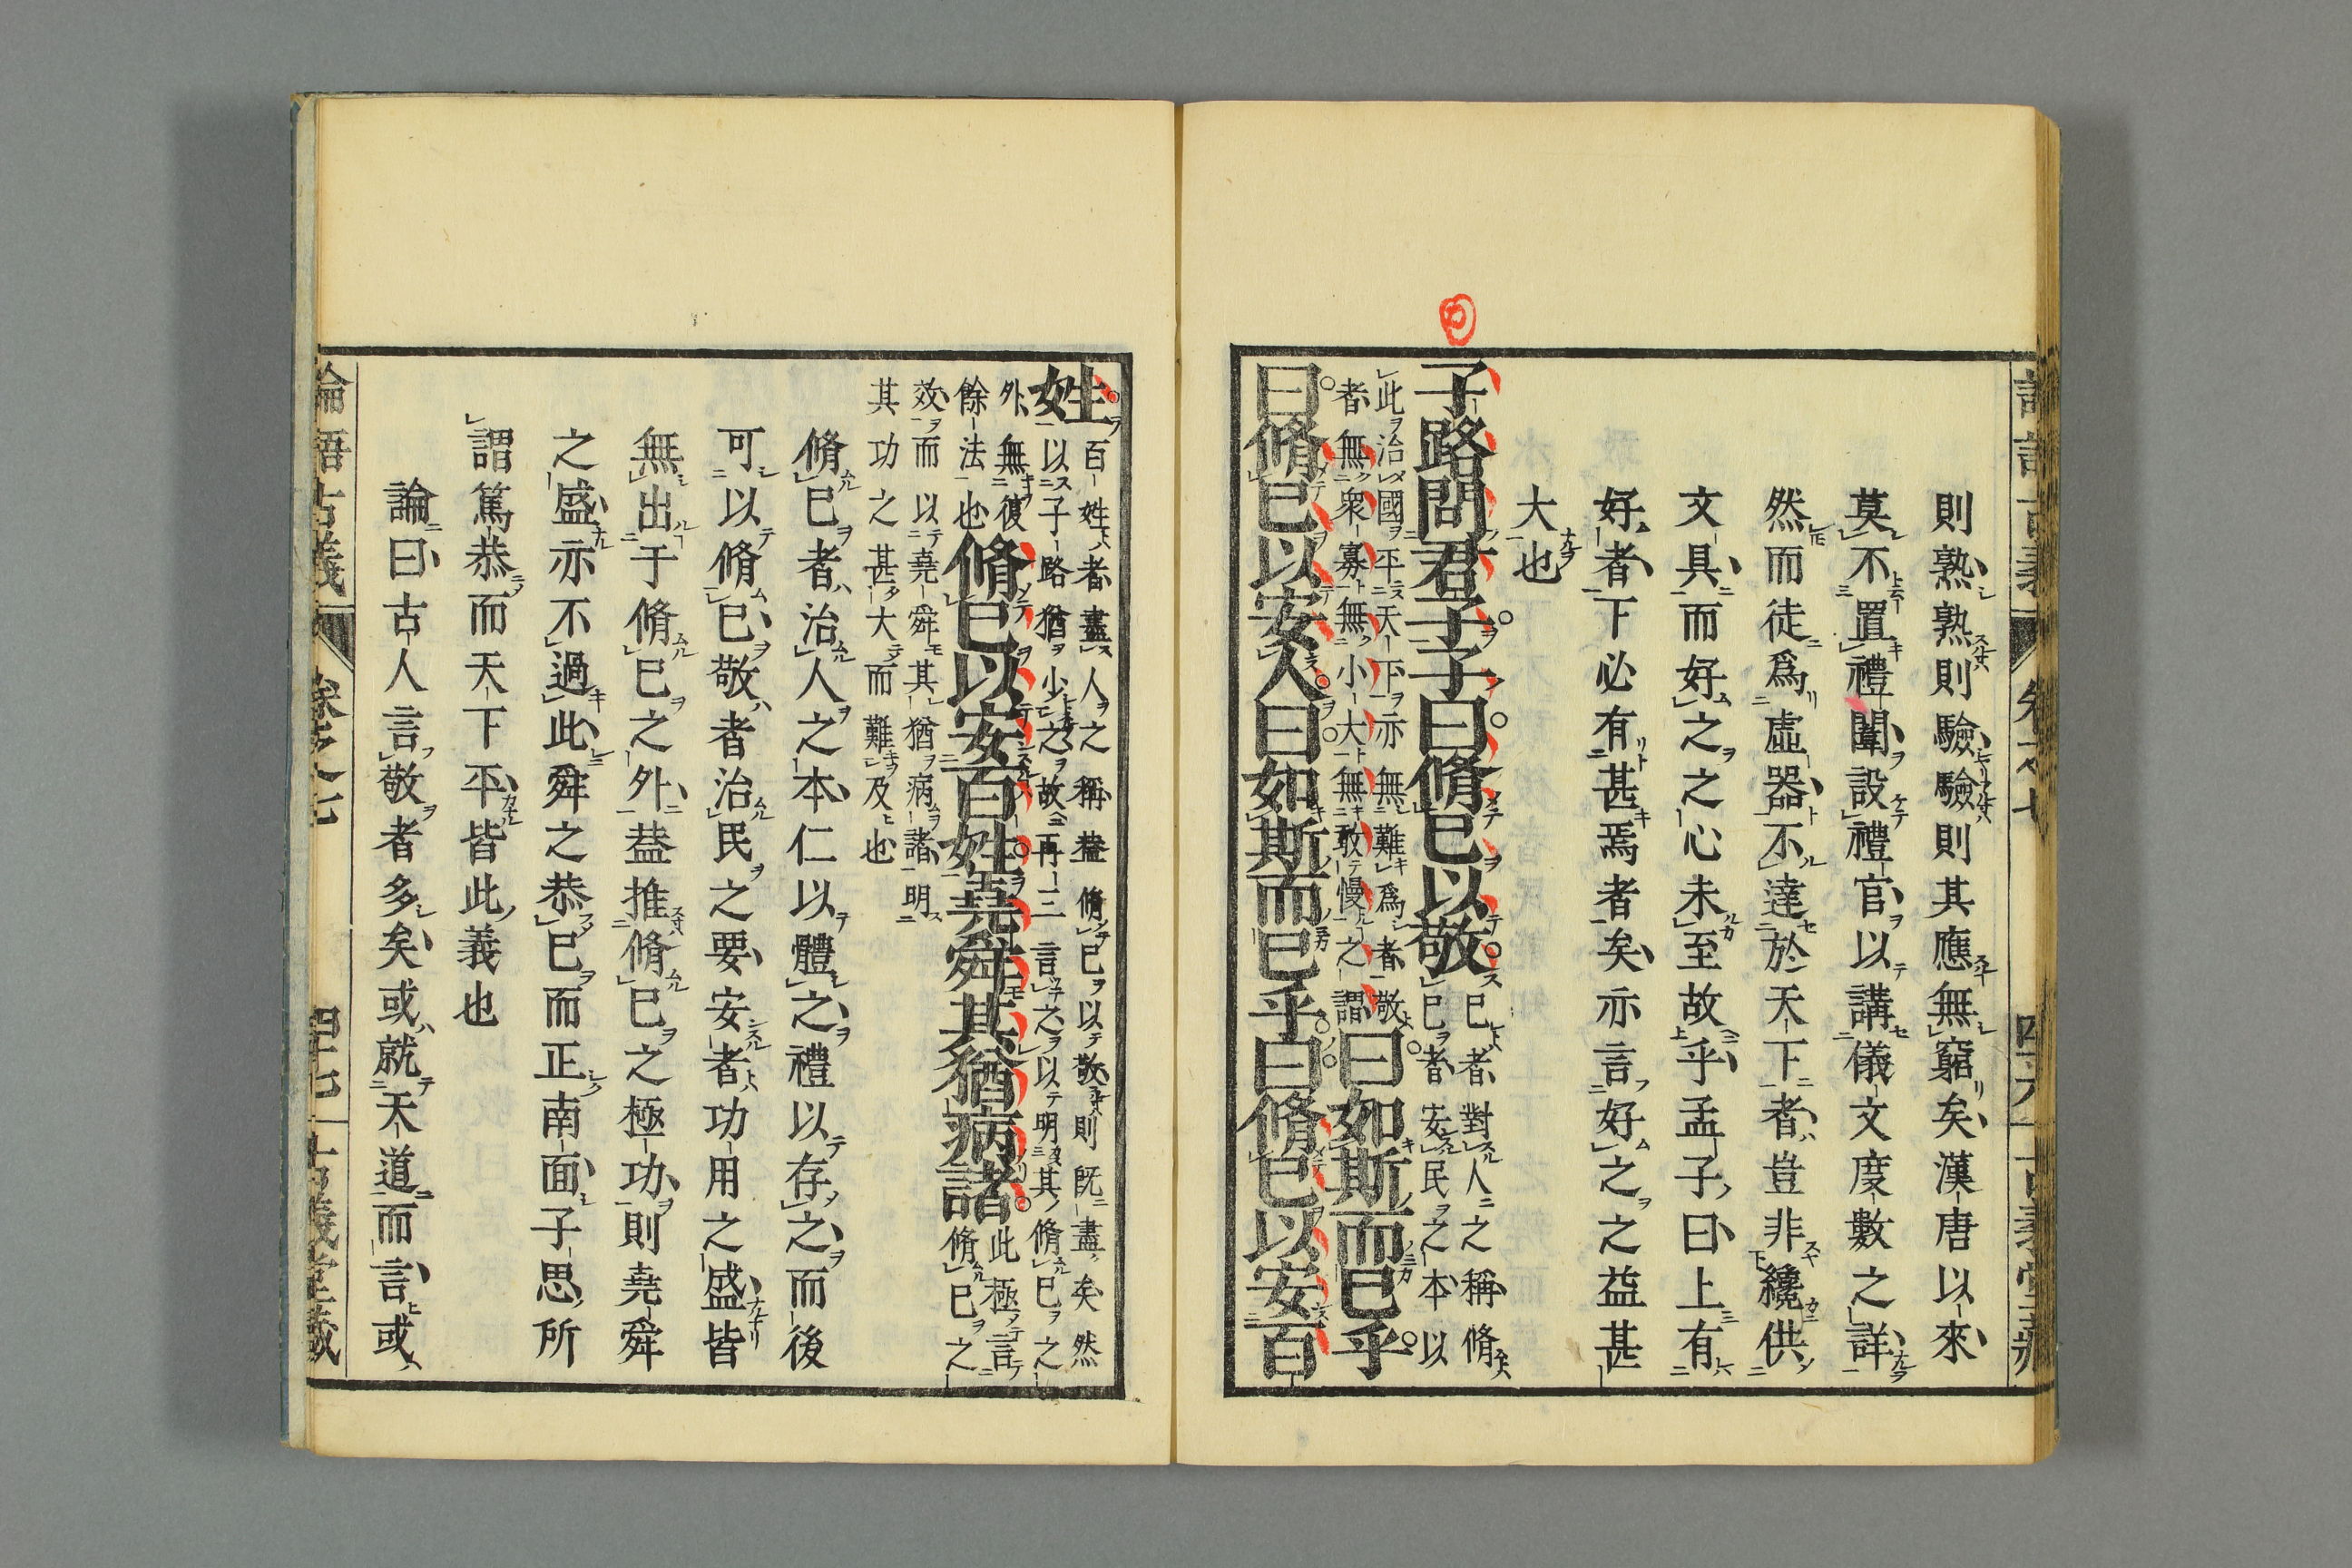 則熟熟則驗驗則其應無窮矣漢唐以來
莫不置禮闈設禮官以講儀文度數之詳
然而徒爲虛器不達於天下者豈非纔供
文具而好之之心未至故乎孟子曰上有
好者下必有甚焉者矣亦言好之之益甚
大也
子路問君子子曰脩己以敬
己者對人之稱脩
己者安民之本以
此治國平天下亦無難爲者敬
者無衆寡無小大無敢慢之謂
曰如斯而已乎
曰脩己以安人曰如斯而已乎曰脩己以安百
姓
百姓者盡人之稱蓋脩己以敬則既盡矣然
以子路猶小之故再三言之以明其脩己之
外無復
餘法也
脩己以安百姓堯舜其猶病諸
此極言
脩己之
效而以堯舜其猶病諸明
其功之甚大而難及也
脩己者治人之本仁以體之禮以存之而後
可以脩己敬者治民之要安者功用之盛皆
無出于脩己之外蓋推脩己之極功則堯舜
之盛亦不過此舜之恭己而正南面子思所
謂篤恭而天下平皆此義也
論曰古人言敬者多矣或就天道而言或
論語古義
卷之七
四十七
古義堂藏